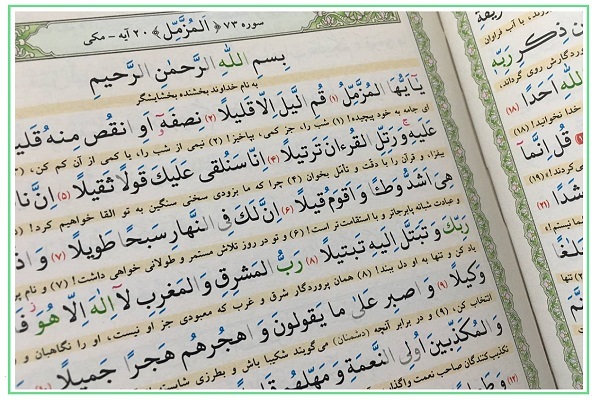 سوره ۷۳ ﴿اَلمُزَّمِّل﴾ ۲۰ آیه - مکی
بِسمِ اللهِ الرَّحمٰنِ الرَّحیمِ
به نام خداوند بخشنده بخشایشگر
یٰاَیُّهَا المُزَّمِّلُ (۱) قُمِ الَّیلَ اِلّا قَلیلًا (۲) نِصفَهٗ اَوِ انقُص مِنهُ
ای جامه به خود پیچیده! (۱) شب را، جز کمی، بپاخیز! (۲) نیمی از شب را، یا کمی از آن کم کن،
عَلَیهِ وَ رَتِّلِ القُرءانَ تَرتیلًا (۴) اِنّا سَنُلقی عَلَیکَ قَولًا ثَقیلًا (۵) اِنَّ
بیفزا، و قرآن را با دقت و تأمل بخوان (۴) چرا که ما بزودی سخنی سنگین به تو القا خواهیم کرد! (۵)
هِیَ اَشَدُّ وَطئًا وَ اَقوَمُ قیلًا (۶) اِنَّ لَکَ فِی النَّهارِ سَبحًا طَویلًا (۷)
و عبادت شبانه پابرجاتر و با استقامت تر است! (۶) و تو در روز تلاش مستمر و طولانی خواهی داشت! (۷) و نام
رَبِّکَ وَ تَبَتَّل اِلَیهِ تَبتیلًا (۸) رَبُّ المَشرِقِ وَ المَغرِبِ لا اِلٰهَ اِلّا هُوَ
یاد کن و تنها به او دل ببند! (۸) همان پروردگار شرق و غرب که معبودی جز او نیست، او را نگاهبان و
وَکیلًا (۹) وَ اصبِر عَلیٰ ما یَقولونَ وَ اهجُرهُم هَجرًا جَمیلًا
انتخاب کن، (۹) و در برابر آنچه (دشمنان) می گویند شکیبا باش و بطرزی شایسته
وَ المُکَذِّبینَ اُولِی النَّعمَةِ وَ مَهِّلهُم
تکذیب کنندگان صاحب نعمت
با آب فراوان
ذِکرِ رَبِّهٖ
روی گرداند،
اللهِ اَحَدًا (۱۸)
نخوانید! (۱۸)
قُل اِنَّما
(۱۹)
(۲۱)